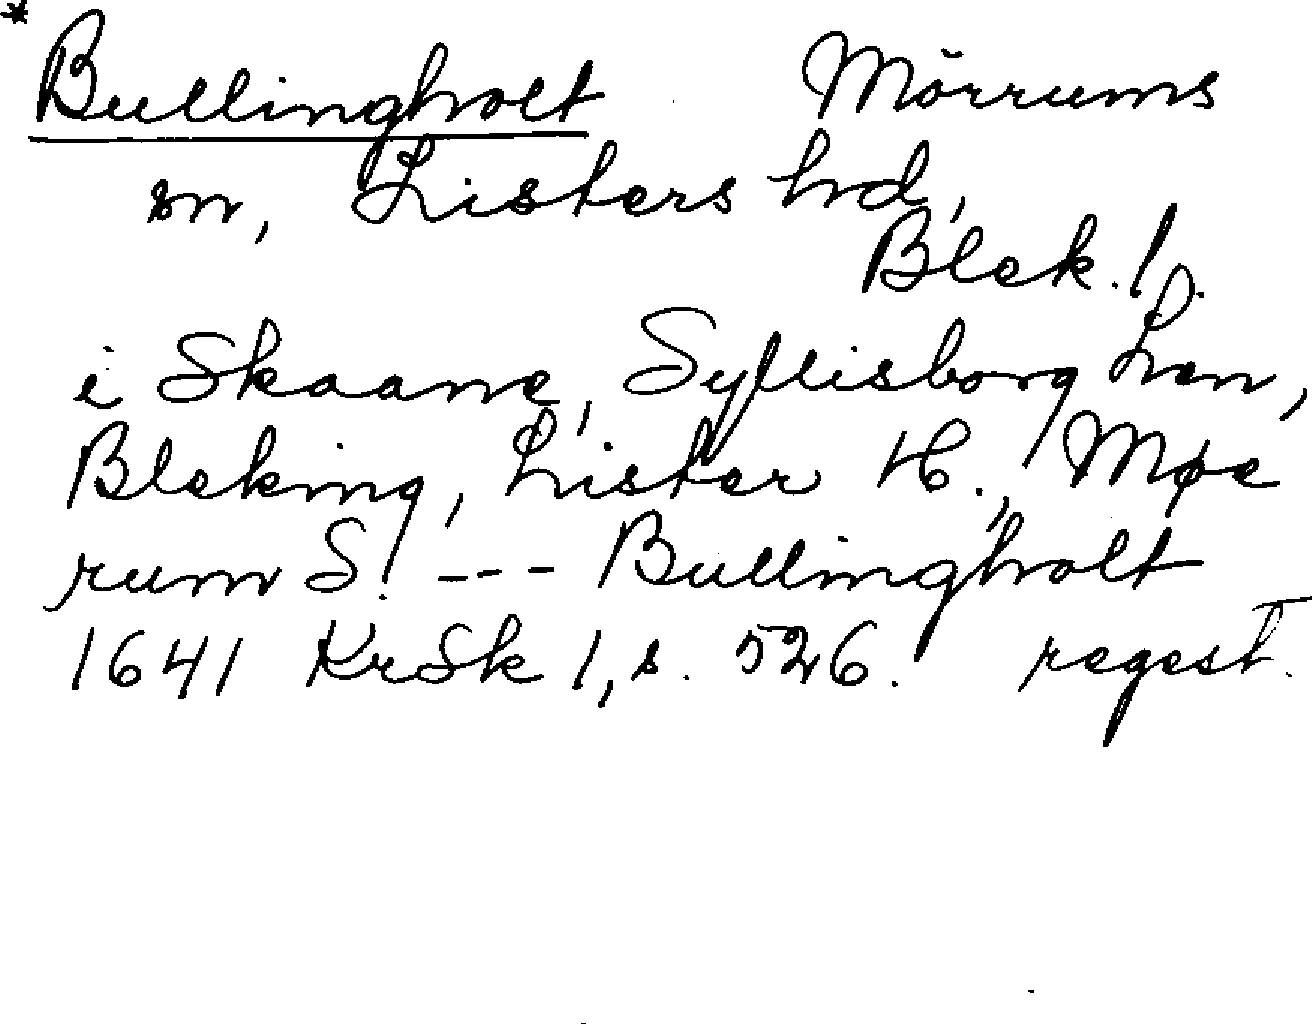 * Bullingholt Mörrums
sn, Listers hd,
Blek. l.
i Skaane, Syllisborg Len,
Bleking, Lister H., Møe
rum S. --- Bullingholt
1641 KrSk 1, s. 526. regest.